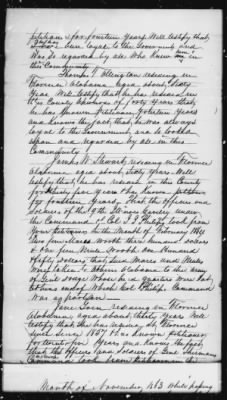 petitioner for fourteen years. Will testify that
he has been loyal to the Government and
Was so regarded by all who knew him in
the Community
Thomas T Allington residing in
Florence Alabama aged about Sixty
Years Will testify that he has resided in
this County upwards of forty years that
he has known petitioner fourteen years
and knows the fact that he was always
loyal to the Government and is looked
upon and regarded by all in this
Community.
James W Stewart residing in Florence
Alabama aged about Sixty Years Will
testify that he has resided in this County
years has known petitioner
for fourteen years, That the officers and
Soldiers of the 9th Illinois Cavalry under
the Command of Col J. J. Phillips took from
your petitioner in the Month of February 1864
two fine Mares Worth three hundred dollars
Worth one hundred
& fifty dollars, that said Mares and Mules
Were taken to Athens Alabama to the army
of Genl Dodge whose head quarters were that
of which Col Phillips Command
Was a portion
residing in Florence
Alabama aged about thirty years Will
testify that she has resided in Florence
since 1857 Has known petitioner
for twenty years and knows the fact
that the officers and Soldiers of Genl Shermans
Command took from petitioner in the
Month of November 1863 while passing